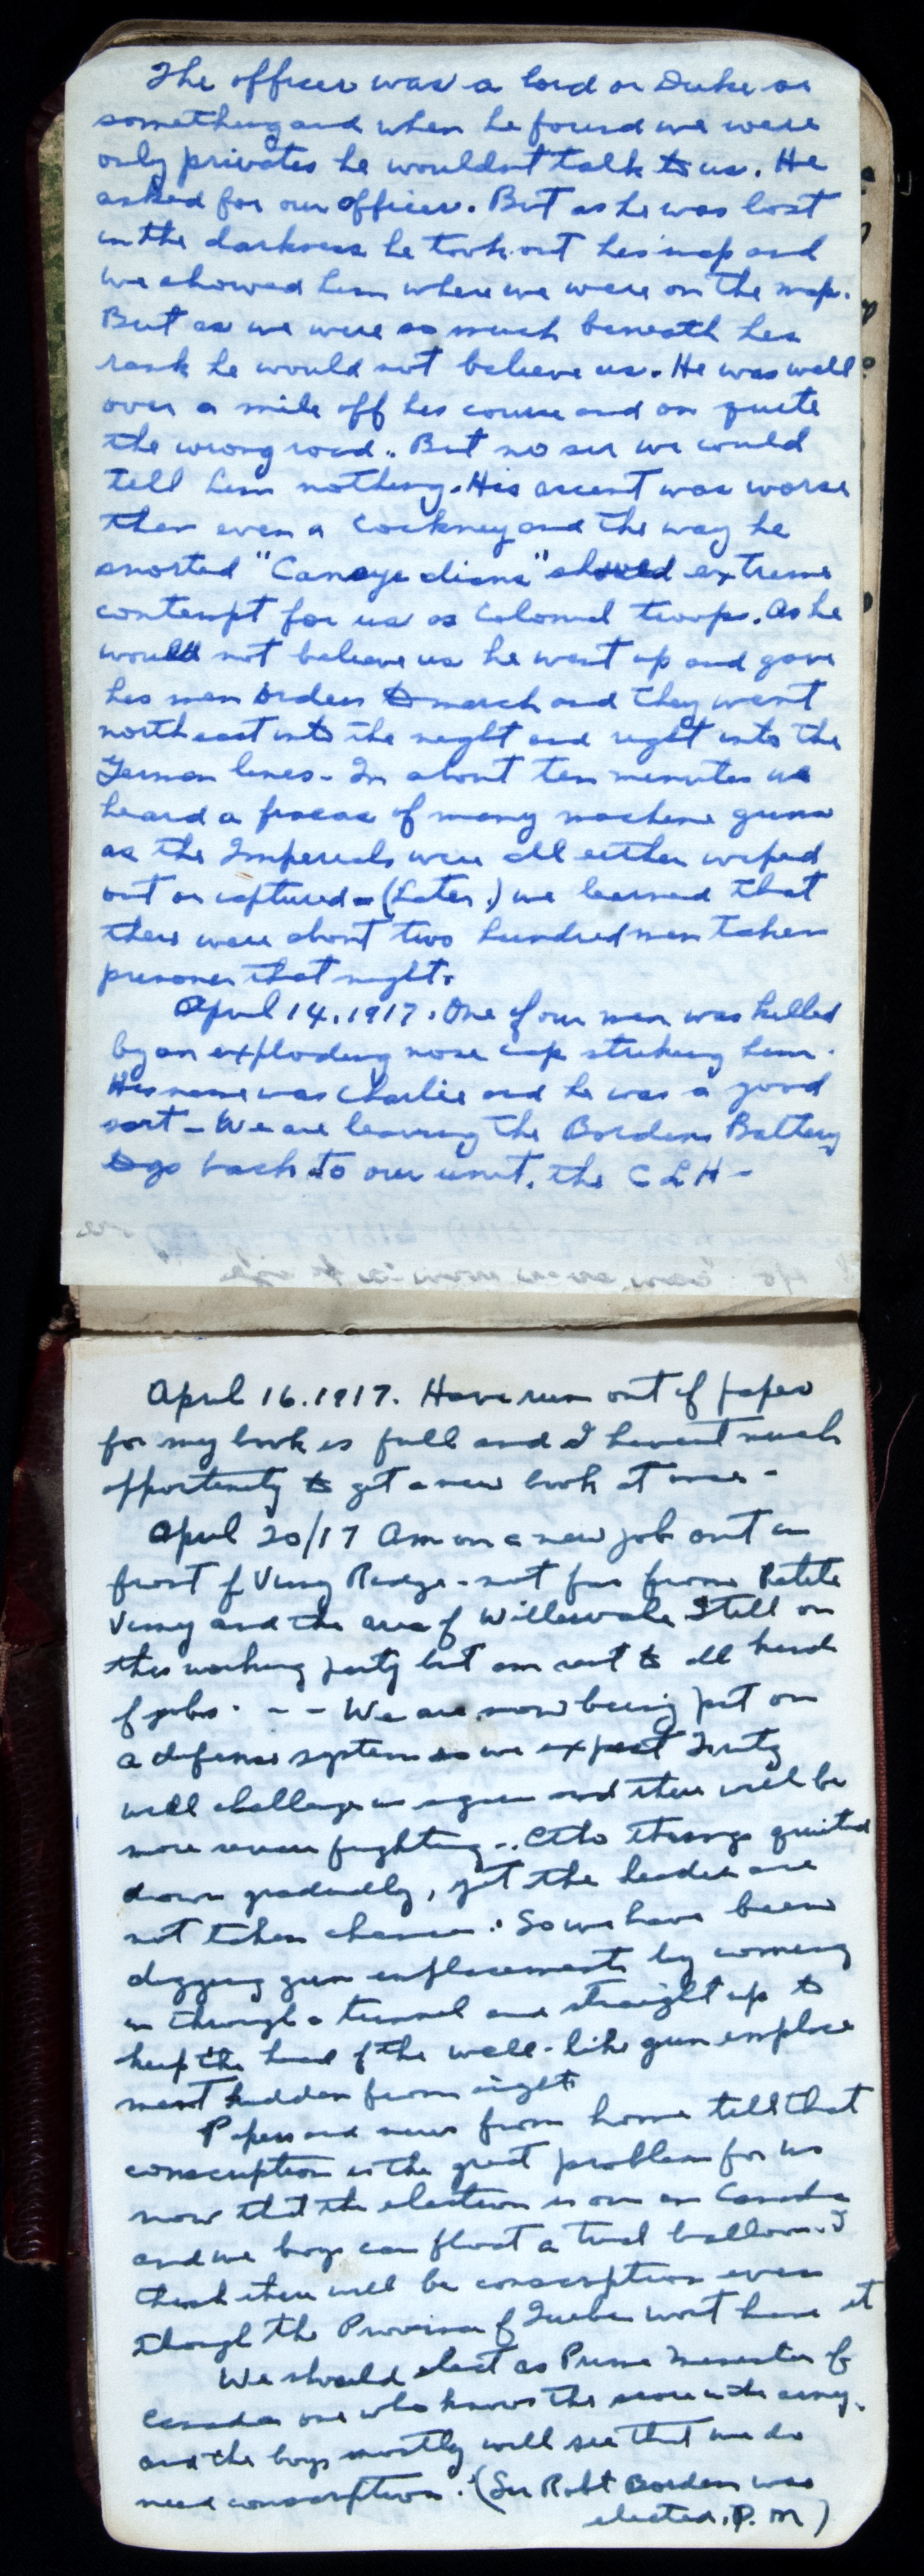 The officer was a lord or Duke or
something and when he found we were
only privates he wouldnt talk to us. He
asked for our officer. But as he was lost
in the darkness he took out his map and
we showed him where we were on the map.
But as we were so much beneath his
rank he would not believe us. He was well
over a mile off his course and on quite
the wrong road.. But no sir we could
tell him nothing. His accent was worse
then even a Cockney and the way he
snorted "Canaye dians" showed extreme
contempt for us as Colonial troops. As he
would not believe us he went up and gave
his men orders to march and they went
northeast into the night and right into the
German lines - In about ten minutes we
heard a fracas of many machine guns
as the Imperials were all either wiped
out or captured - (Later.) we learned that
there were about two hundred men taken
prisoner that night.
April 14, 1917. One of our men was killed
by an exploding nose cap striking him.
His name was Charlie and he was a good
sort - We are leaving the Bordens Battery
to go back to our unit, the C L H -
April 16. 1917. Have run out of paper
for my book is full and I havent much
opportunity to get a new book at once -
April 20/17 Am on a new job out in
front of Vimy Ridge - not far from Petite
Vimy and the area of Willerval. Still on
this working party but am sent to all kinds
of jobs. - - We are now being put on
a defense system as we expect Fritz
will challenge us again and there will be
more severe fighting .. Altho things quieted
down gradually, yet the leaders are
not taken chances. So we have been
digging gun emplacements by coming
in through a tunnel and straight up to
keep the head of the well-like gun emplace
ment hidden from sight
Papers and news from home tell that
conscription is the great problem for us
now that the election is on in Canada
and we boys can float a trial balloon. I
think there will be conscription even
though the Province of Quebec wont have it
We should elect as Prime Minister of
Canada one who knows the score in the army.
and the boys mostly will see that we do
need conscription. (Sir Robt Borden was
elected, P. M)